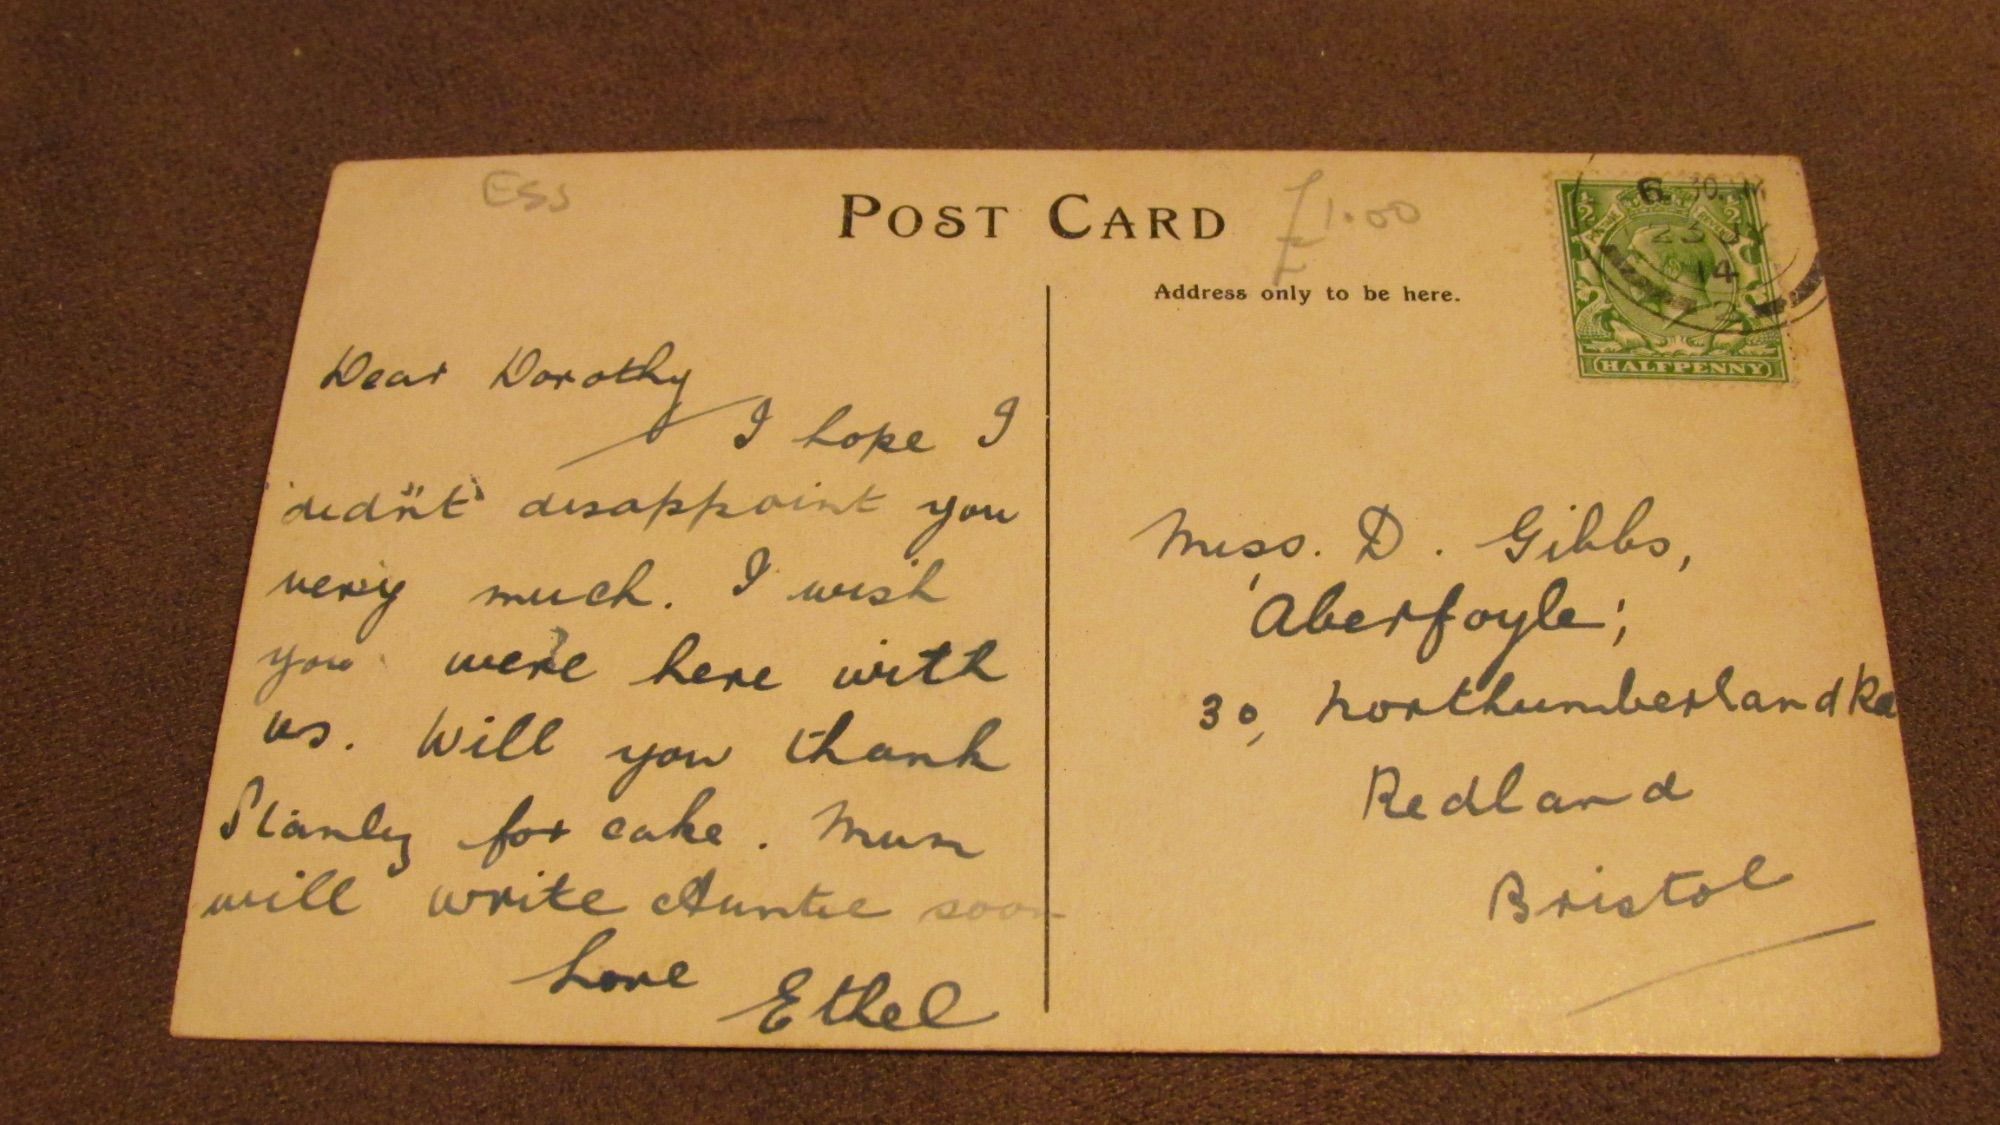 Ess
POST CARD
£1.00
Address only to be here.
6.30.
23 JY
14
HALFPENNY
Dear Dorothy
I hope I
didn't disappoint you
very much. I wish
you were here with
us. Will you thank
Stanley for cake. Mum
will write Auntie soon
Love Ethel
Miss. D. Gibbs,
'Aberfoyle',
30, Northumberland Rd
Redland
Bristol